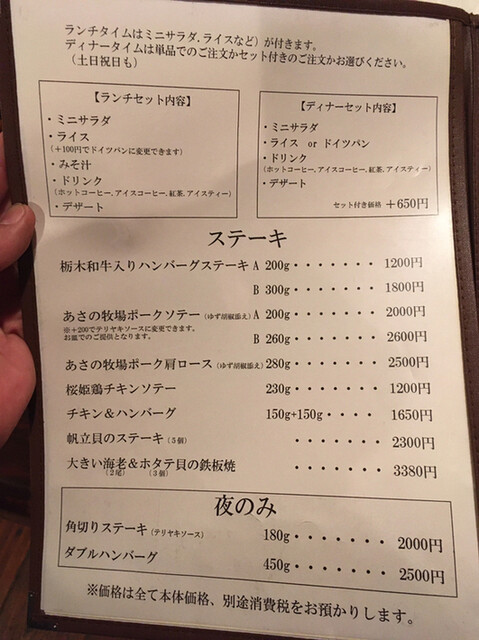 ランチタイムはミニサラダ、ライスなど）が付きます。
ディナータイムは単品でのご注文かセット付きのご注文かお選びください。
（土日祝日も）
【ランチセット内容】
・ミニサラダ
・ライス
（＋100円でドイツパンに変更できます）
・みそ汁
・ドリンク
（ホットコーヒー、アイスコーヒー、紅茶、アイスティー）
・デザート
【ディナーセット内容】
・ミニサラダ
・ライス or ドイツパン
・ドリンク
（ホットコーヒー、アイスコーヒー、紅茶、アイスティー）
・デザート
セット付き価格 ＋650円
ステーキ
栃木和牛入りハンバーグステーキ A 200g・・・・・・・ 1200円
B 300g・・・・・・・ 1800円
あさの牧場ポークソテー（ゆず胡椒添え） A 200g・・・・・・・ 2000円
※＋200でテリヤキソースに変更できます。
お皿でのご提供となります。
B 260g・・・・・・・ 2600円
あさの牧場ポーク肩ロース（ゆず胡椒添え） 280g・・・・・・・ 2500円
桜姫鶏チキンソテー 230g・・・・・・・ 1200円
チキン＆ハンバーグ 150g+150g・・・・ 1650円
帆立貝のステーキ（5個） ・・・・・・・ 2300円
大きい海老＆ホタテ貝の鉄板焼 ・・・・・・・ 3380円
（2尾） （3個）
夜のみ
角切りステーキ（テリヤキソース） 180g・・・・・・・ 2000円
ダブルハンバーグ 450g・・・・・・・ 2500円
※価格は全て本体価格、別途消費税をお預かりします。